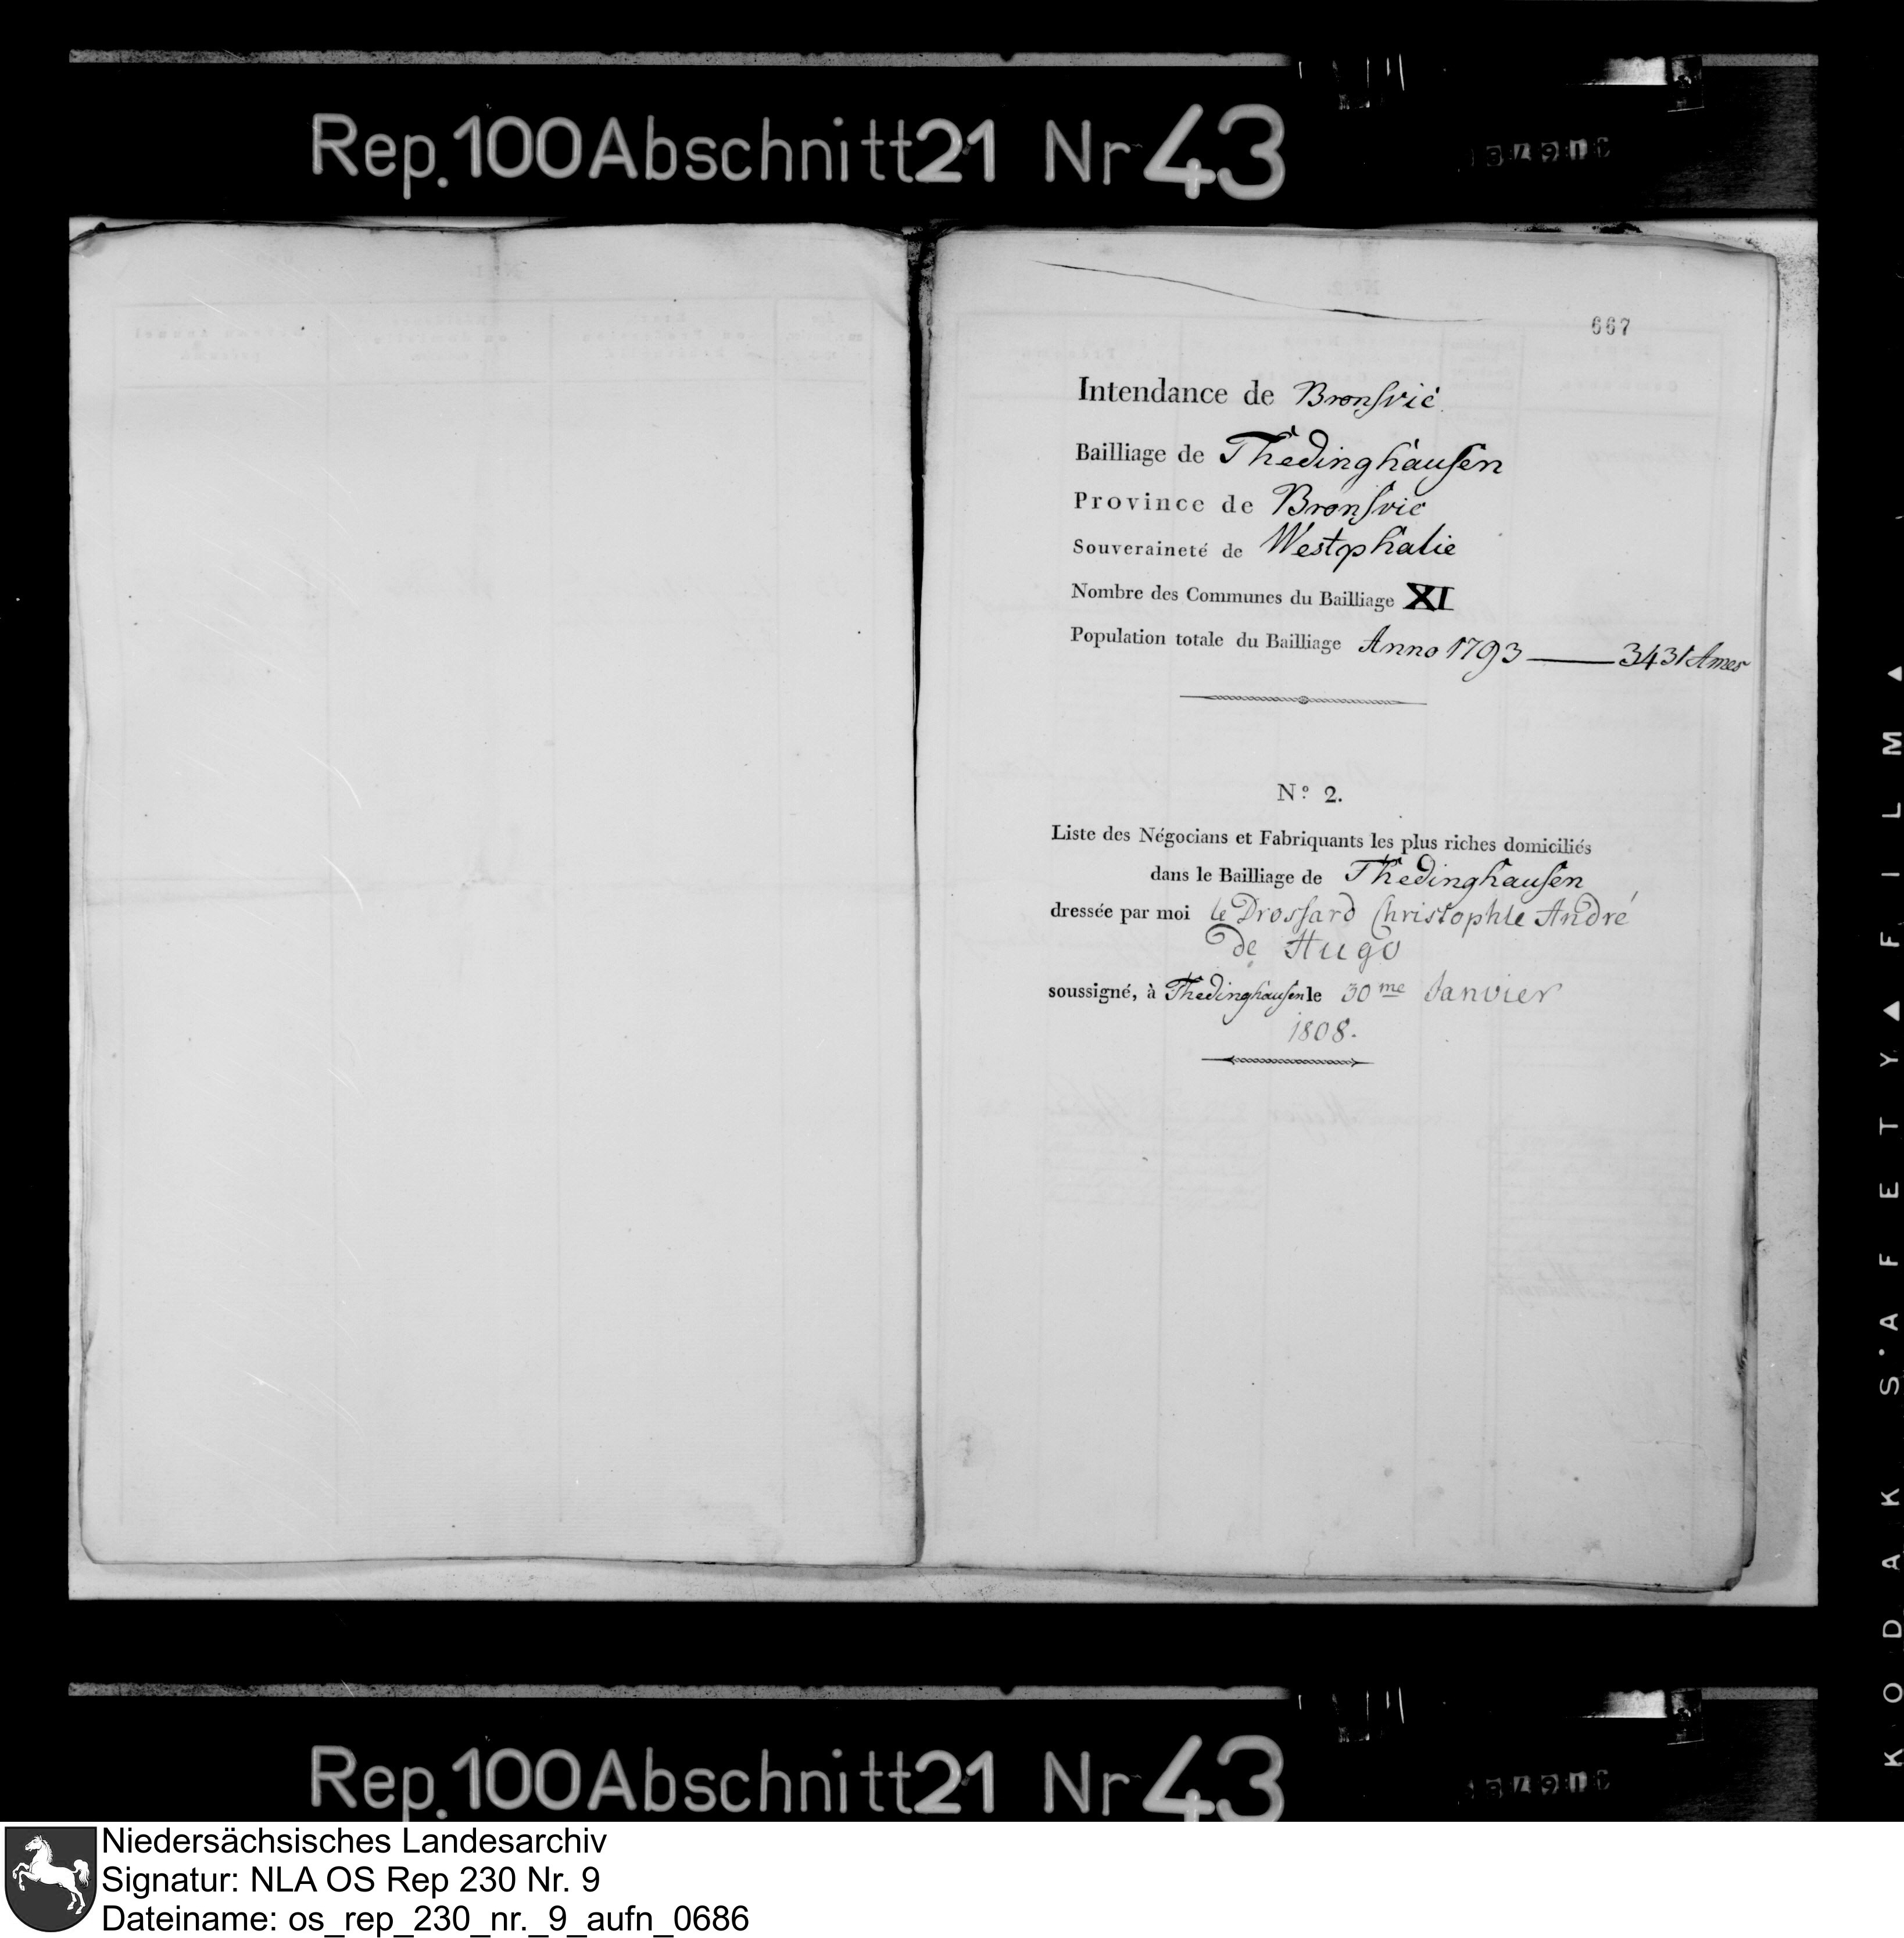 Rep.100 Abschnitt 21 Nr 43
667
Intendance de Bronsvic
Bailliage de Thedinghausen
Province de Bronsvic
Souveraineté de Westphalie
Nombre des Communes du Bailliage XI
Population totale du Bailliage Anno 1793 — 3431 Ames
N.º 2.
Liste des Négocians et Fabriquants les plus riches domiciliés
dans le Bailliage de Thedinghausen
dressée par moi le Drossard Christophle André
de Hugo
soussigné, à Thedinghausen le 30me Janvier
1808.
KODAK SAFETY FILM
Rep.100 Abschnitt 21 Nr 43
Niedersächsisches Landesarchiv
Signatur: NLA OS Rep 230 Nr. 9
Dateiname: os_rep_230_nr._9_aufn_0686